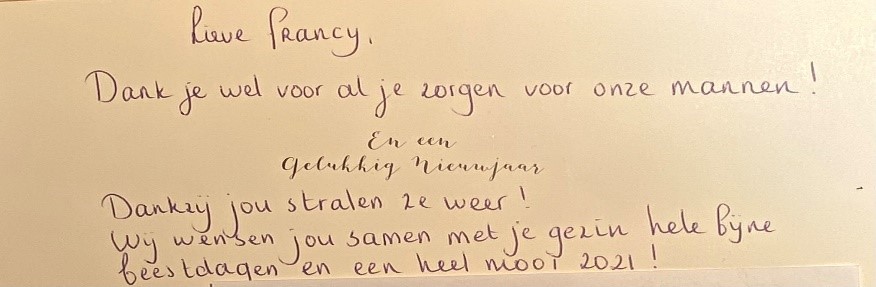 Lieve Francy,
Dank je wel voor al je zorgen voor onze mannen!
En een
Gelukkig Nieuwjaar
Dankzij jou stralen ze weer!
Wij wensen jou samen met je gezin hele fijne
feestdagen en een heel mooi 2021!